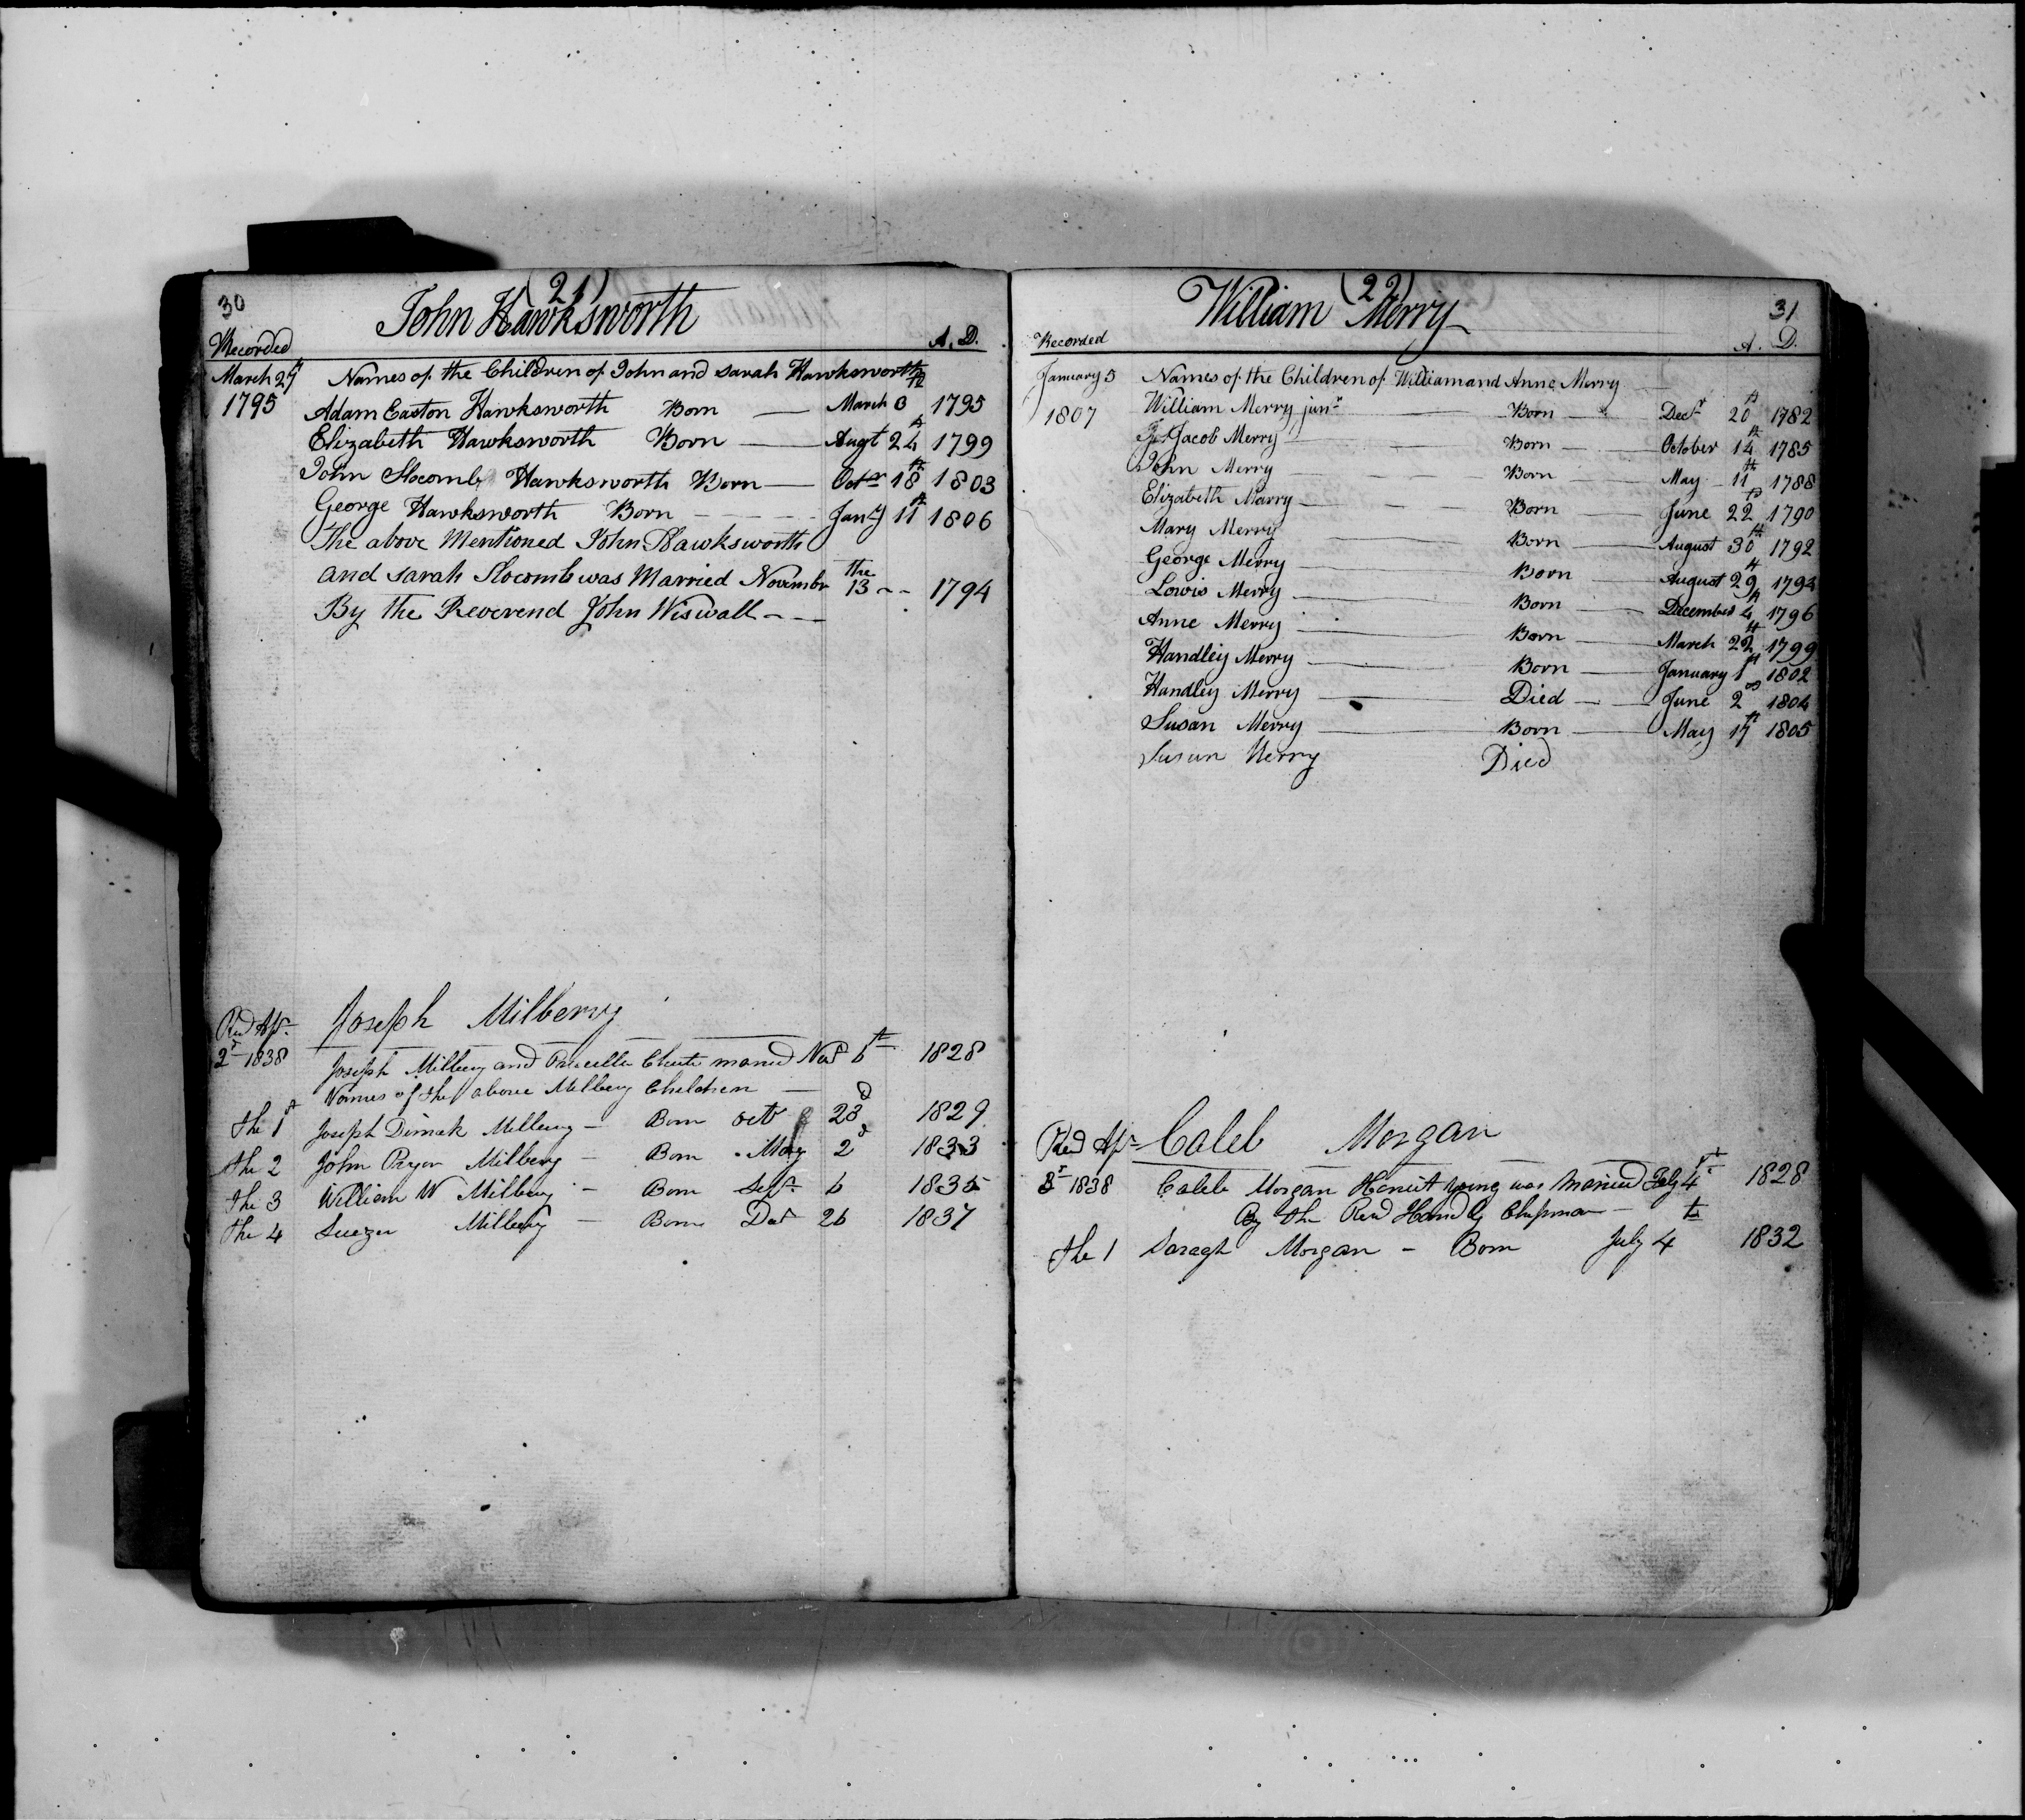 30 (21)
John Hawksworth
Recorded A. D.
March 27th Names of the Children of John and Sarah Hawksworth
1795 Adam Easton Hawksworth Born — March 8th 1795
Elizabeth Hawksworth Born — Augt 24th 1799
John Slocomb Hawksworth Born — Octr 18th 1803
George Hawksworth Born — Jany 11th 1806
The above Mentioned John Hawksworth
and Sarah Slocomb was Married Novembr the 13 -- 1794
By the Reverend John Wiswall - —
Joseph Milbery
Recd Apr.
2d 1838 Joseph Milbery and Chute married Novr 6th 1828
Names of the above Milbery Children —
the 1st Joseph Dimak Milbery — Born octr 23d 1829
the 2 John Pryor Milbery — Born May 2d 1833
the 3 William W Milbery — Born Sept. 6 1835
the 4 Milbery — Born Decr 26 1837
(22) 31
William Merry
Recorded A. D.
January 5 Names of the Children of William and Anne Merry
1807 William Merry junr — Born — Decr 20th 1782
Jacob Merry — Born — October 14th 1785
John Merry — Born — May 11th 1788
Elizabeth Marry — Born — June 22d 1790
Mary Merry — Born — August 30th 1792
George Merry — Born — August 29th 1794
Lowis Merry — Born — December 4th 1796
Anne Merry — Born — March 22th 1799
Handley Merry — Born — January 1st 1802
Handley Merry — Died — June 2d 1804
Susan Merry — Born — May 17th 1805
Susan Merry Died
Recd Apr Caleb Morgan
1838 Caleb Morgan young was Maried 4th 1828
By the Revd Handly Chipman —
the 1 Saragh Morgan — Born July 4th 1832